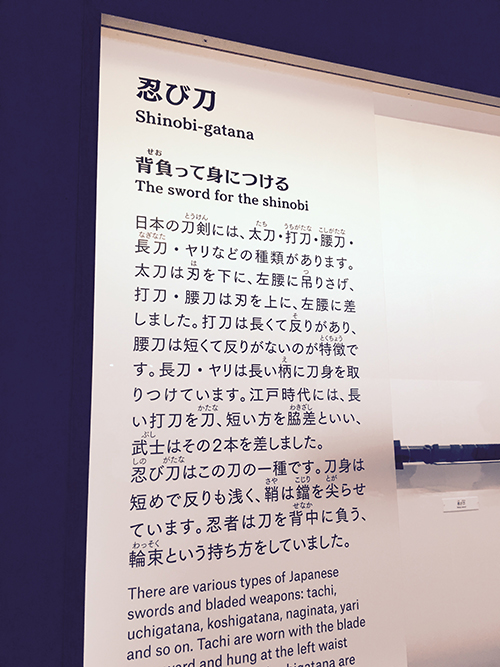 忍び刀
Shinobi-gatana
背負って身につける
The sword for the shinobi
日本の刀剣には、太刀・打刀・腰刀・
長刀・ヤリなどの種類があります。
太刀は刃を下に、左腰に吊りさげ、
打刀・腰刀は刃を上に、左腰に差
しました。打刀は長くて反りがあり、
腰刀は短くて反りがないのが特徴で
す。長刀・ヤリは長い柄に刀身を取
りつけています。江戸時代には、長
い打刀を刀、短い方を脇差といい、
武士はその2本を差しました。
忍び刀はこの刀の一種です。刀身は
短めで反りも浅く、鞘は鐺を尖らせ
ています。忍者は刀を背中に負う、
輪束という持ち方をしていました。
There are various types of Japanese
swords and bladed weapons: tachi,
uchigatana, koshigatana, naginata, yari
and so on. Tachi are worn with the blade
and hung at the left waist
are